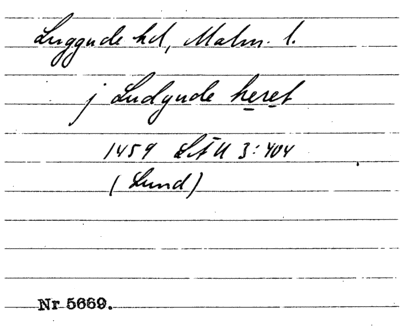 Luggude hd, Malm. l.
j Ludgude heret
1459 LÄU 3:404
(Lund)
Nr 5669.